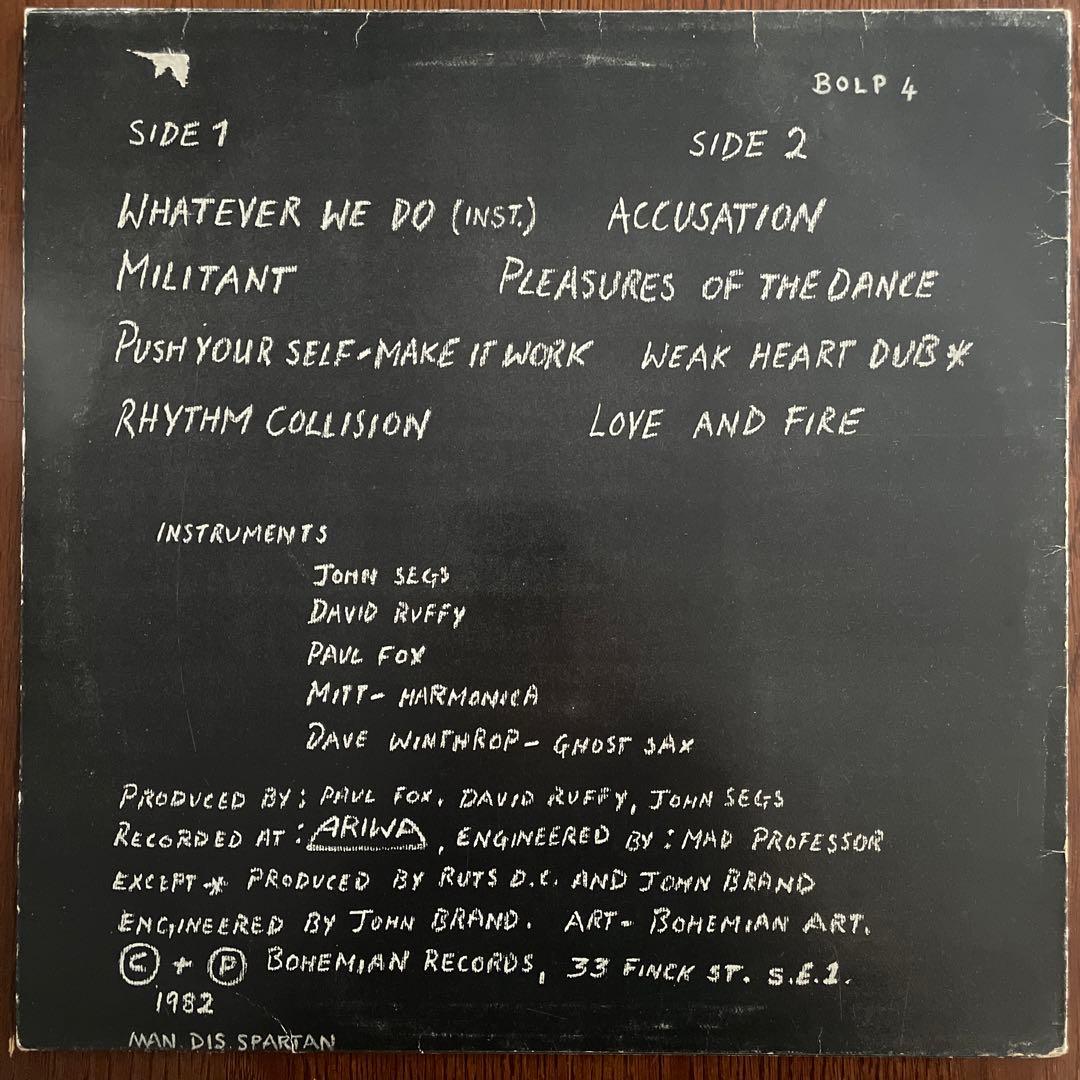 BOLP 4
SIDE 1
SIDE 2
WHATEVER WE DO (INST.)
ACCUSATION
MILITANT
PLEASURES OF THE DANCE
PUSH YOUR SELF-MAKE IT WORK
WEAK HEART DUB*
RHYTHM COLLISION
LOVE AND FIRE
INSTRUMENTS
JOHN SEGS
DAVID RUFFY
PAUL FOX
MITT- HARMONICA
DAVE WINTHROP- GHOST SAX
PRODUCED BY: PAUL FOX, DAVID RUFFY, JOHN SEGS
RECORDED AT: ARIWA, ENGINEERED BY: MAD PROFESSOR
EXCEPT * PRODUCED BY RUTS D.C. AND JOHN BRAND
ENGINEERED BY JOHN BRAND. ART- BOHEMIAN ART.
© + ℗ BOHEMIAN RECORDS, 33 FINCK ST. S.E.1.
1982
MAN. DIS. SPARTAN